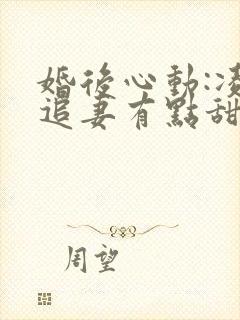 婚後心動:凌
追妻有點甜
周望